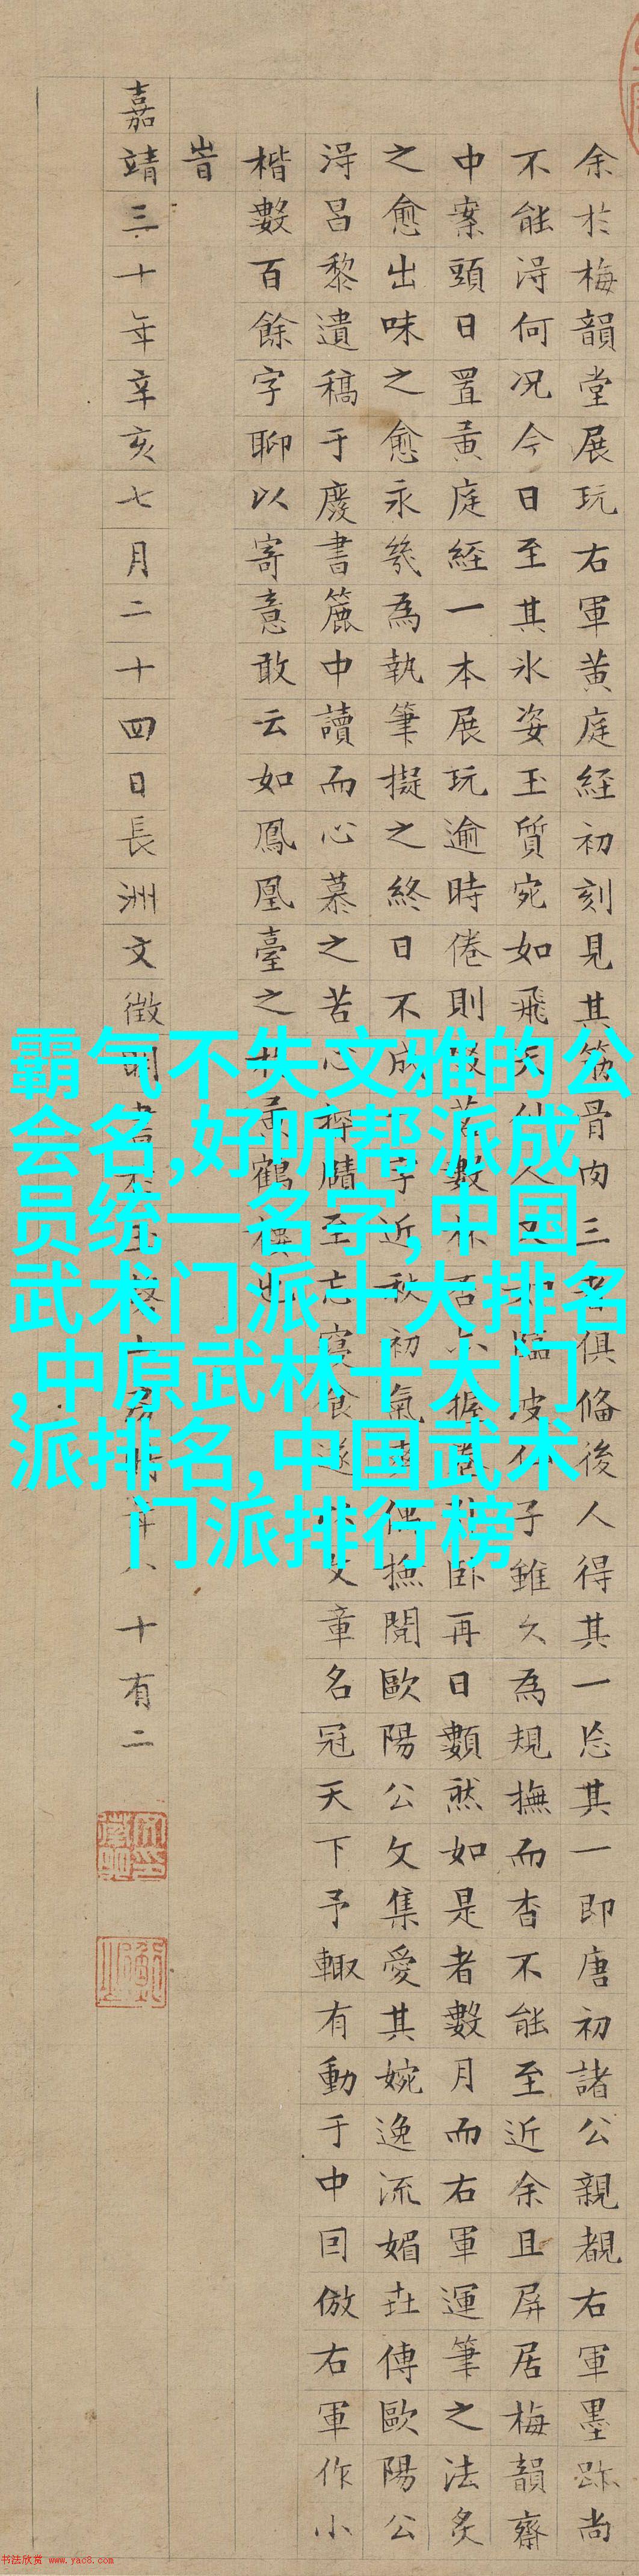 余於梅韻堂展玩右軍黃庭経初刻見其筋骨肉三者俱偹後人得其一忘其一即唐初諸公親覩右軍墨跡尚
不能淂何况今日至其氷姿玉質宛如飛天仙人子雖久為規撫而杳不能至近余且屏居梅韻齋
中案頭日置黃庭経一本展玩逾時倦則茗數杯否亦握卷臥再日數然如是者數月而右軍運筆之法炙
之愈出味之愈永㡬為執筆擬之終日不成字近秋初氣偶撫閱歐陽公文集愛其婉逸流媚傳歐陽公
淂呂黎遺稿于廢書簏中讀而心慕之苦心牘至忘寝食遂文章名冠天下予輙有動于中囙倣右軍作小
楷數百餘字聊以寄意敢云如鳳凰臺之於黃鶴樓也
旹
嘉靖三十年辛亥七月二十四日長洲文徵明書山房時年八十有二
霸气不失文雅的公
会名,好听帮派成
员统一名字,中国
武术门派十大排名
,中原武林十大门
派排名,中国武术
门派排行榜
书法欣赏 www.yac8.com